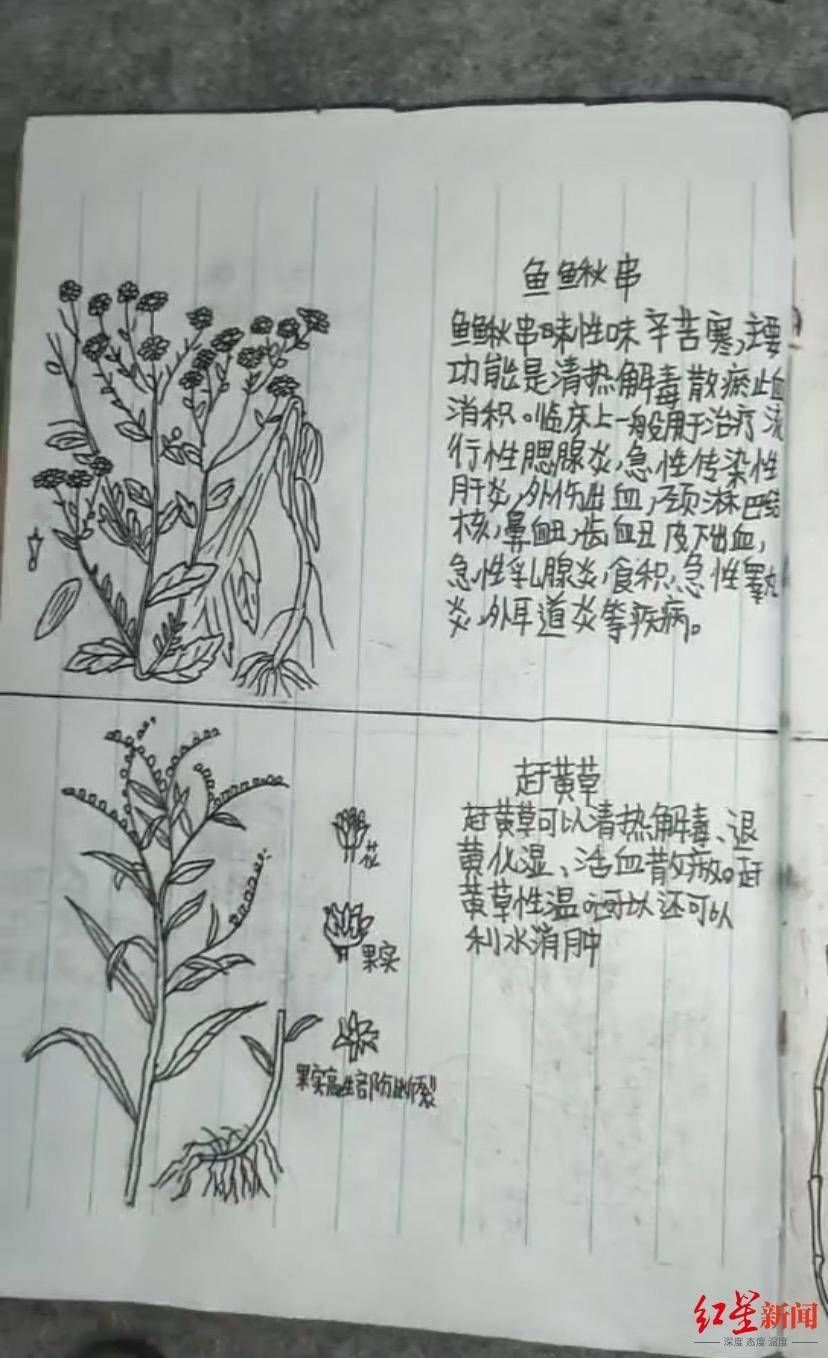 鱼鳅串
鱼鳅串味性味辛苦寒,主要
功能是清热解毒散瘀止血
消积。临床上一般用于治疗流
行性腮腺炎,急性传染性
肝炎,外伤出血,颈淋巴结
核,鼻衄,齿衄皮下出血,
急性乳腺炎,食积,急性睾丸
炎,外耳道炎等疾病。
赶黄草
赶黄草可以清热解毒、退
黄化湿、活血散瘀。赶
黄草性温。可以还可以
利水消肿
花
果实
红星新闻
深度 态度 温度